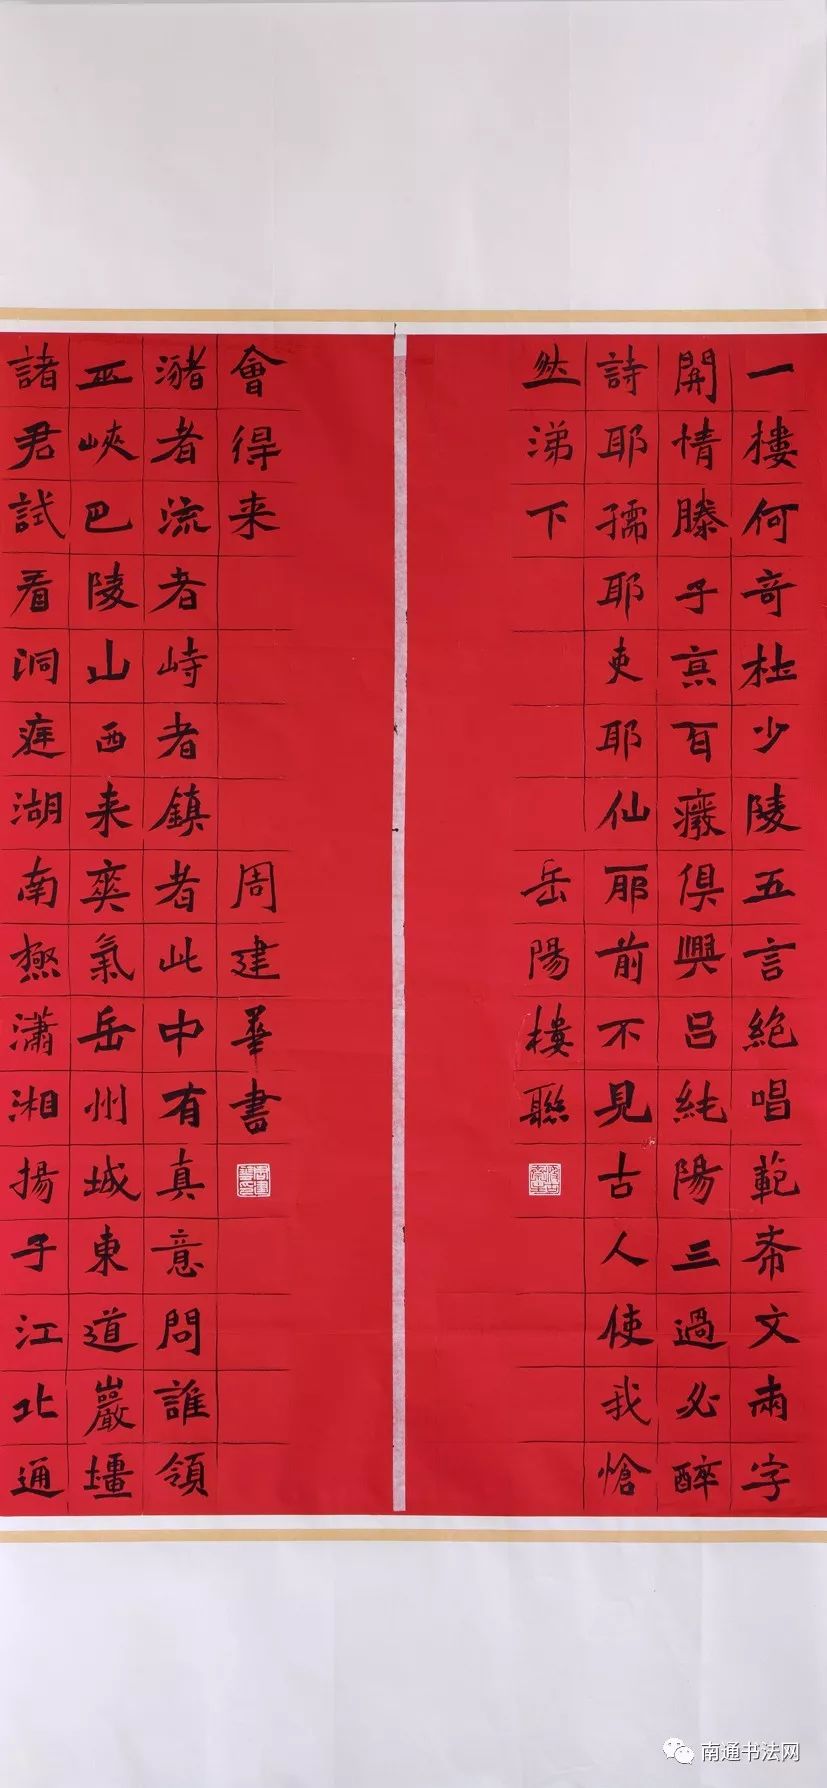 一樓何奇杜少陵五言絶唱範希文兩字
開情滕子京百癈俱興呂純陽三過必醉
詩耶孺耶吏耶仙耶前不見古人使我愴
然涕下
岳陽樓聯
諸君試看洞庭湖南極瀟湘揚子江北通
巫峽巴陵山西来爽氣岳州城東道巖壃
瀦者流者峙者鎮者此中有真意問誰領
會得来
周建華書
南通书法网